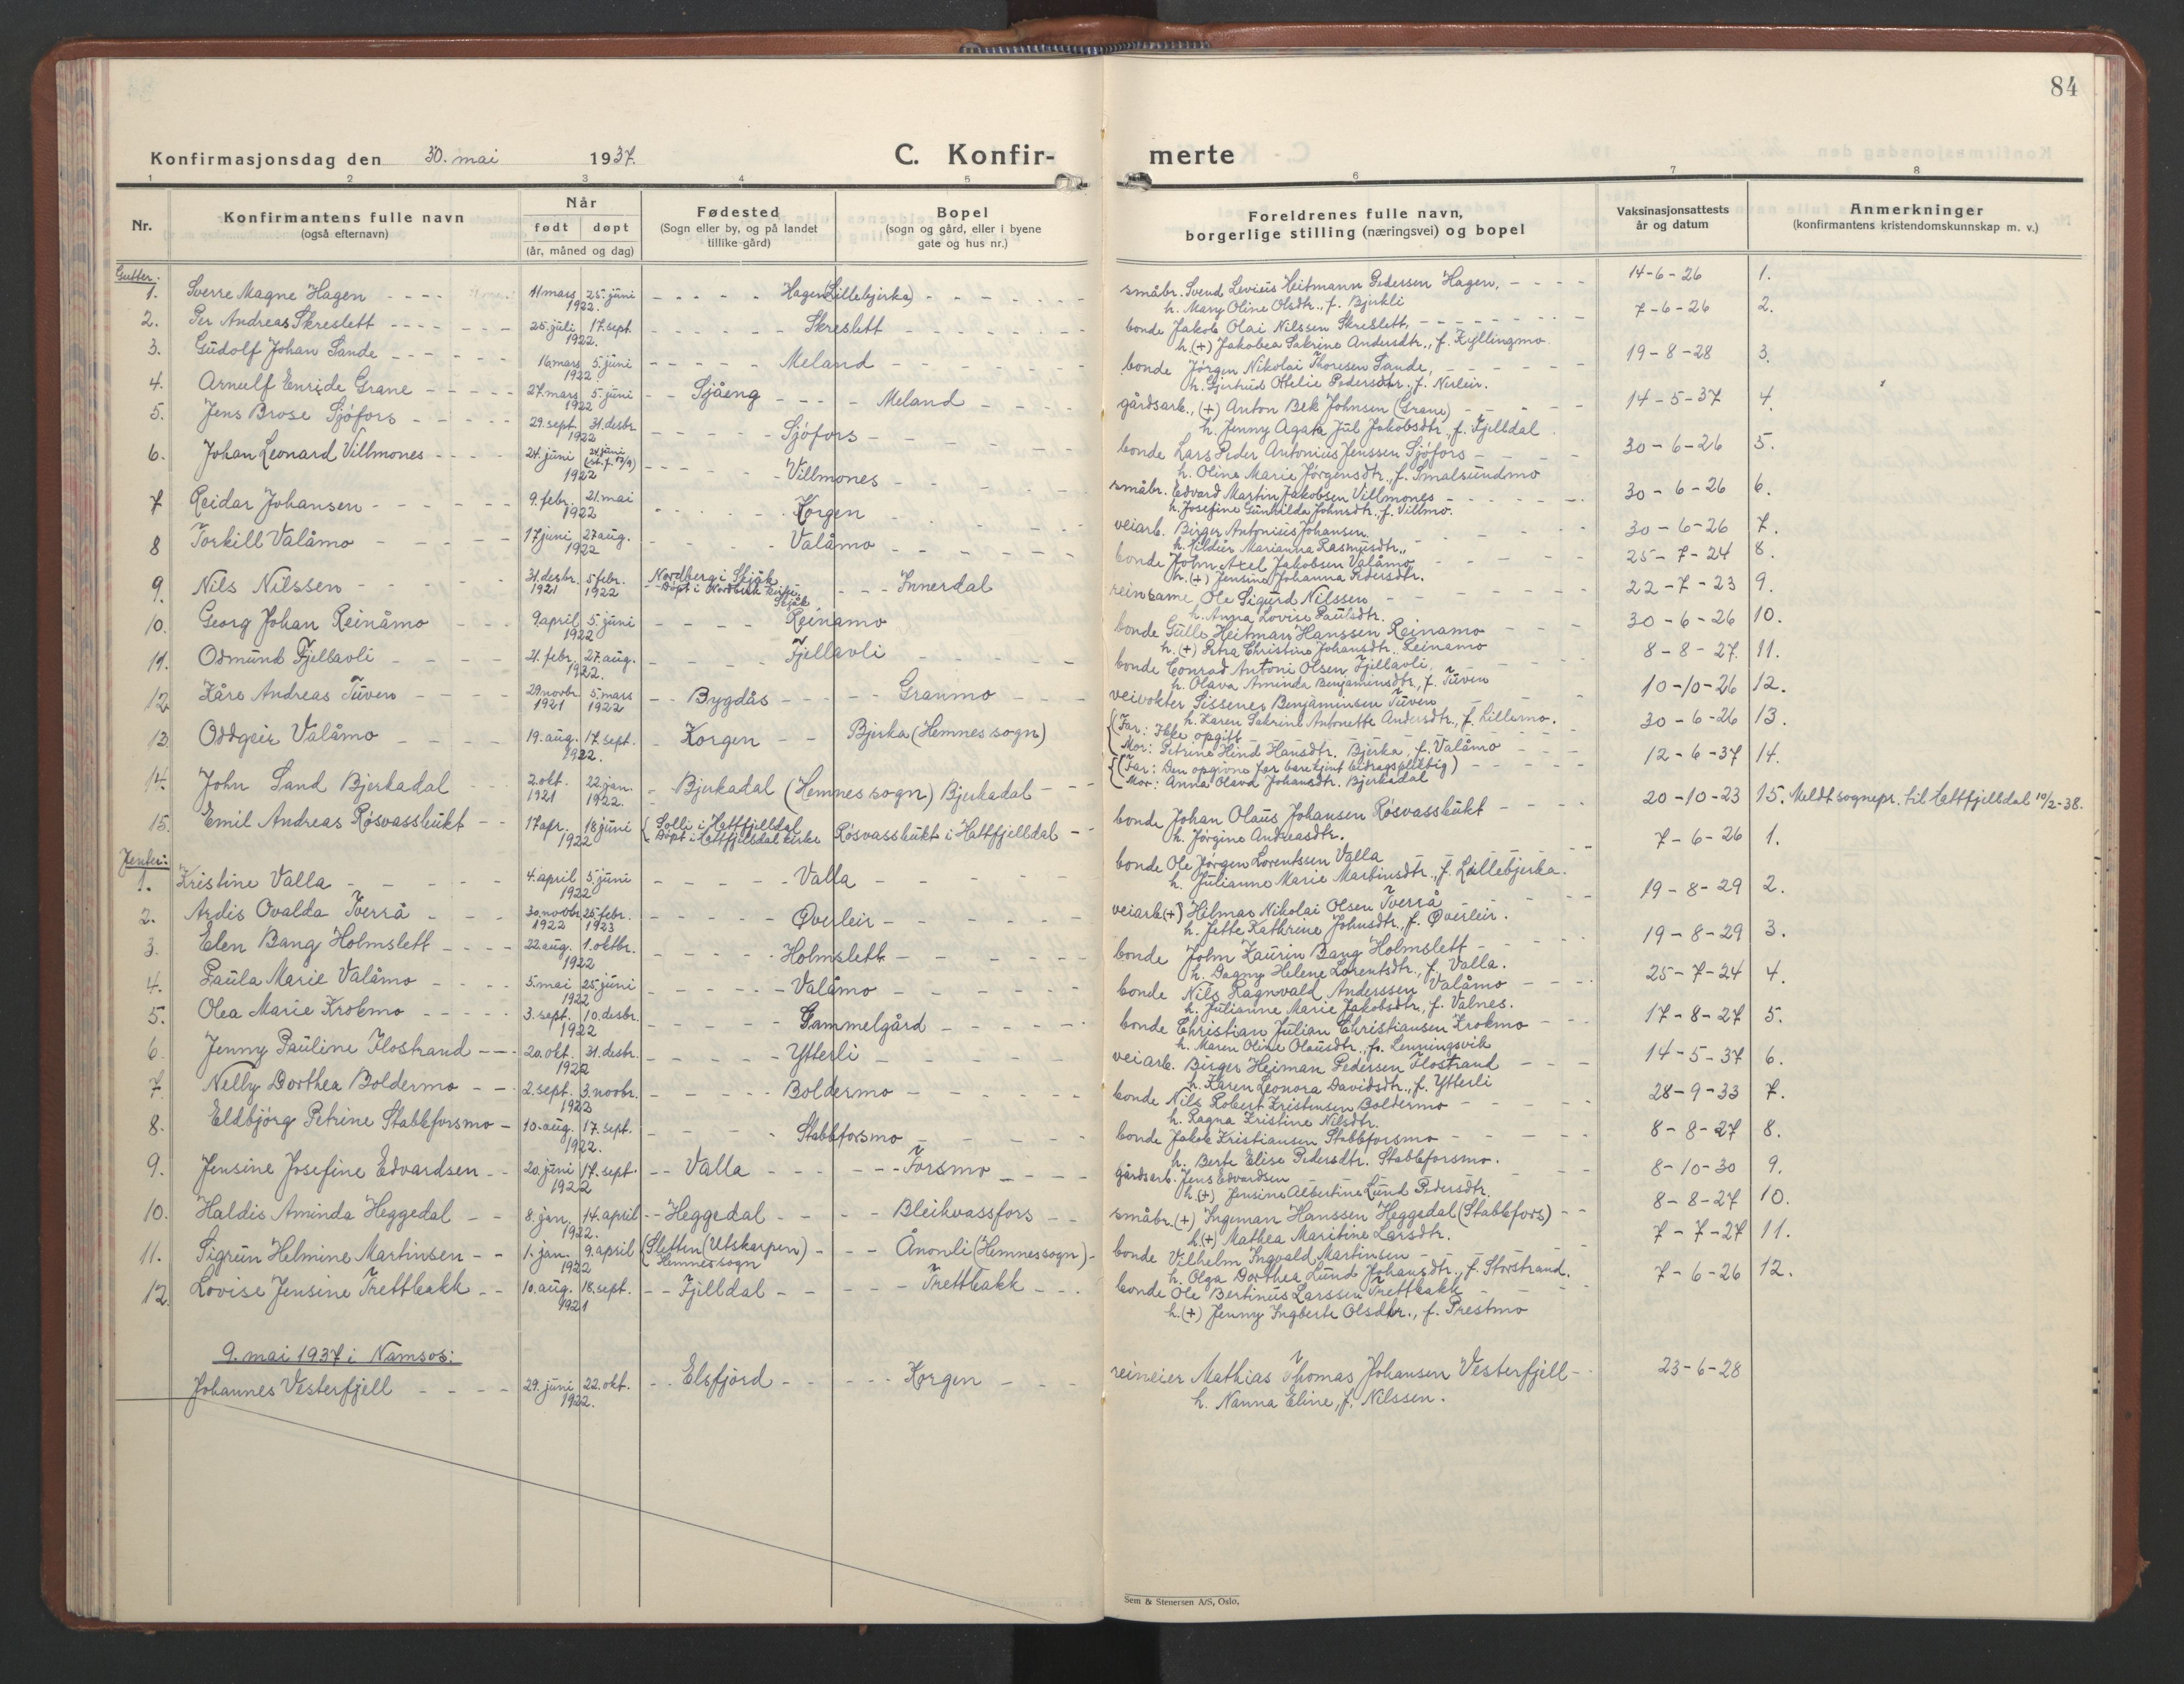 84
Konfirmasjonsdag den 30. mai 1937.
C. Konfir- merte
1 2 3 4 5 6 7 8
Nr.
Konfirmantens fulle navn
(også efternavn)
Når
født døpt
(år, måned og dag)
Fødested
(Sogn eller by, og på landet
tillike gård)
Bopel
(sogn og gård, eller i byene
gate og hus nr.)
Foreldrenes fulle navn,
borgerlige stilling (næringsvei) og bopel
Vaksinasjonsattests
år og datum
Anmerkninger
(konfirmantens kristendomskunnskap m. v.)
Gutter:
1. Sverre Magne Hagen 11 mars 25. juni 1922. Hagen (Lillebjerka) småbr. Svend Levius Heitmann Pedersen Hagen, 14-6-26 1.
h. Mary Oline Olsdtr., f. Bjerkli
2. Per Andreas Skreslett 25. juli 17. sept. 1922. Skreslett bonde Jakob Olai Nilssen Skreslett, 7-6-26 2.
h. (+) Jakobea Sakrine Andersdtr., f. Kyllingmo
3. Gudolf Johan Sande 16 mars 5. juni 1922. Meland bonde Jørgen Nikolai Thoresen Sande, 19-8-28 3.
h. Gjertrud Otelie Pedersdtr. f. Nerleir.
4. Arnulf Enride Grane 27. mars 5. juni 1922 Sjåeng Meland gårdsarb., (+) Anton Bek Johnsen (Grane) 14-5-37 4.
h. Jenny Agata Jul Jakobsdtr., f. Fjelldal
5. Jens Brose Sjøfors 29. sept. 31. desbr 1922 Sjøfors bonde Lars Peder Antonius Jenssen Sjøfors 30-6-26 5.
h. Oline Marie Jørgensdtr., f. Smalsundmo
6. Johan Leonard Villmones 24. juni 24. juni (st. f. 17/9) 1922 Villmones småbr. Edvard Martin Jakobsen Villmones 30-6-26 6.
h. Josefine Gunhilda Johnsdtr., f. Villmo.
7 Reidar Johansen 9. febr. 21. mai 1922 Korgen veiarb. Birger Antonius Johansen 30-6-26 7.
h. Hildur Marianna Rasmusdtr.,
8 Torkill Valåmo 17 juni 27 aug. 1922 Valåmo bonde John Axel Jakobsen Valåmo 25-7-24 8.
h. (+) Jensine Johanna Pedersdtr.
9. Nils Nilssen 31. desbr. 1921 5 febr. 1922 Nordberg i Skjåk Døpt i Nordberg kirke, Skjåk Innerdal reinsame Ole Sigurd Nilssen 22-7-23 9.
h. Anna Lovise Paulsdtr.
10. Georg Johan Reinåmo 9 april 5. juni 1922 Reinåmo bonde Gulle Heitman Hanssen Reinamo 30-6-26 10.
h. (+) Petra Christine Johansdtr. Reinamo
11. Odmund Fjellavli 21. febr. 27. aug. 1922. Fjellavli bonde Conrad Antoni Olsen Fjellavli, 8-8-27. 11.
h. Olava Aminda Benjaminsdtr., f. Tuven
12. Kåre Andreas Tuven 29 novbr 1921 5. mars 1922 Bygdås Granmo veivokter Sissener Benjaminsen Tuven 10-10-26 12.
h. Karen Sakrine Antonette Andersdtr., f. Lillemo.
13. Oddgeir Valåmo 19. aug. 17. sept. 1922. Korgen Bjerka (Hemnes sogn) {Far: Ikke opgitt 30-6-26 13.
Mor: Petrine Hind Hansdtr. Bjerka, f. Valåmo
14. John Sand Bjerkadal 2. okt. 1921 22. jan. 1922. Bjerkadal (Hemnes sogn) Bjerkadal {(Far: Den opgivne far bare kjent bidragspliktig) 12-6-37 14.
Mor: Anna Olava Johansdtr. Bjerkadal
15. Emil Andreas Røsvassbukt 17 apr. 18 juni 1922 {Solli i Hattfjelldal Døpt i Hattfjelldal kirke Røsvassbukt i Hattfjelldal bonde Johan Olaus Johansen Røsvassbukt 20-10-23 15. Meldt sognepr. til Hattfjelldal 10/2-38.
h. Jørgine Andreasdtr.
Jenter:
1. Kristine Valla 4. april 5. juni 1922 Valla bonde Ole Jørgen Lorentssen Valla 7-6-26 1.
h. Julianne Marie Martinsdtr., f. Lillebjerka.
2. Ardis Ovalda Tverrå 30 novbr 1922 25 febr. 1923 Øverleir veiarb (+) Hilmar Nikolai Olsen Tverrå 19-8-29 2.
h. Jette Kathrine Johnsdtr., f. Øverleir.
3. Elen Bang Holmslett 22. aug. 1. oktbr. 1922 Holmslett bonde John Kaurin Bang Holmslett 19-8-29 3.
h. Dagny Helene Lorentsdtr., f. Valla.
4. Paula Marie Valåmo 5. mai 25. juni 1922 Valåmo bonde Nils Ragnvald Anderssen Valåmo 25-7-24 4.
h. Julianne Marie Jakobsdtr., f. Valnes.
5. Olea Marie Krokmo 3. sept. 10. desbr. 1922 Gammelgård bonde Christian Julian Christiansen Krokmo 17-8-27 5.
h. Maren Oline Olausdtr., f. Lenningsvik
6. Jenny Pauline Flostrand 20. okt. 31. desbr. 1922 Ytterli veiarb. Birger Heiman Pedersen Flostrand 14-5-37 6.
h. Karen Leonora Davidsdtr., f. Ytterli
7. Nelly Dorthea Boldermo 2. sept. 3. novbr. 1922 Boldermo bonde Nils Robert Kristensen Boldermo 28-9-33 7.
h. Ragna Kristine Nilsdtr.
8. Eldbjørg Petrine Stabbforsmo 10. aug. 17. sept. 1922. Stabbforsmo bonde Jakob Kristiansen Stabbforsmo 8-8-27 8.
h. Berte Elise Pedersdtr. Stabbforsmo.
9. Jensine Josefine Edvardsen 20. juni 17. sept. 1922 Valla Forsmo gårdsarb. Jens Edvardsen 8-10-30 9.
h. (+) Jensine Albertine Lund Pedersdtr.
10. Haldis Aminda Heggedal 8. jan. 14. april 1922. Heggedal Bleikvassfors småbr. (+) Ingeman Hanssen Heggedal (Stabbfors) 8-8-27 10.
h. (+) Mathea Maritine Larsdtr.
11. Sigrun Helmine Martinsen 1. jan. 9. april 1922 {Sletten (Utskarpen) Hemnes sogn Ånonli (Hemnes sogn) bonde Vilhelm Ingvald Martinsen 7-7-27 11.
h. Olga Dorthea Lund Johansdtr., f. Storstrand.
12. Lovise Jensine Trettbakk 10. aug. 18. sept. 1921 Fjelldal Trettbakk bonde Ole Bertinus Larssen Trettbakk 7-6-26 12.
h. (+) Jenny Ingberte Olsdtr., f. Prestmo
9. mai 1937 i Namsos:
Johannes Vesterfjell 29. juni 22. okt. 1922. Elsfjord Korgen reineier Mathias Thomas Johansen Vesterfjell 23-6-28
h. Nanna Eline, f. Nilssen.
Sem & Stenersen A/S, Oslo.